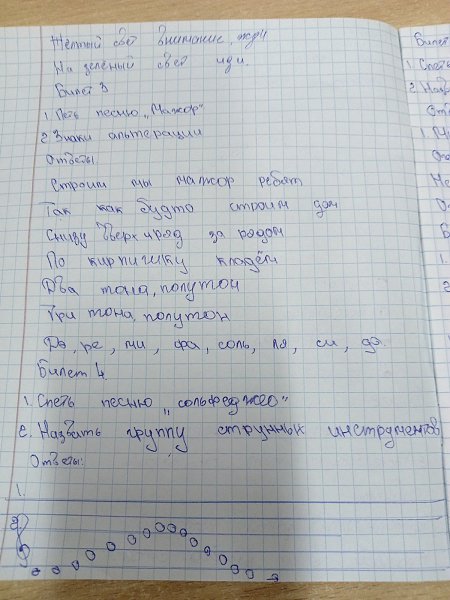 Жёлтый свет внимание, жди
На зелёный свет иди.
Билет 3
1. Петь песню „Мажор"
2. Знаки альтерации
Ответы.
Строим мы мажор ребят
Так как будто строим дом
Снизу вверх ряд за рядом
По кирпичику кладём
Два тона, полутон
Три тона, полутон
До, ре, ми, фа, соль, ля, си, до.
Билет 4.
1. Спеть песню „сольфеджео"
2. Назвать группу струнных инструментов
Ответы:
1.
Билет
1. Спеть
2. Назва
Отв
1.